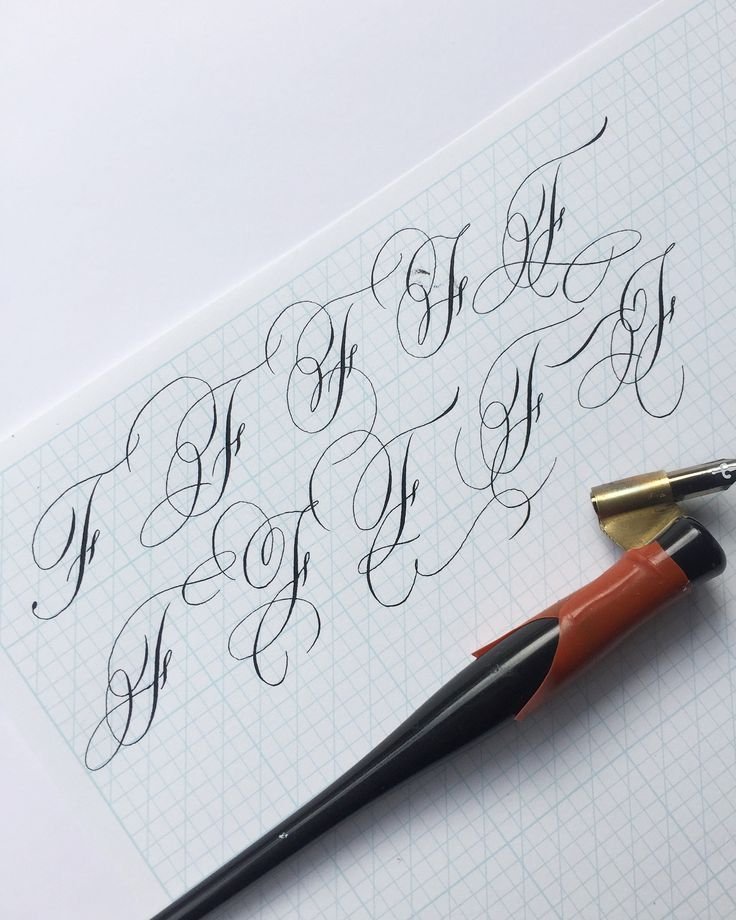 F F F F F
F F F F F